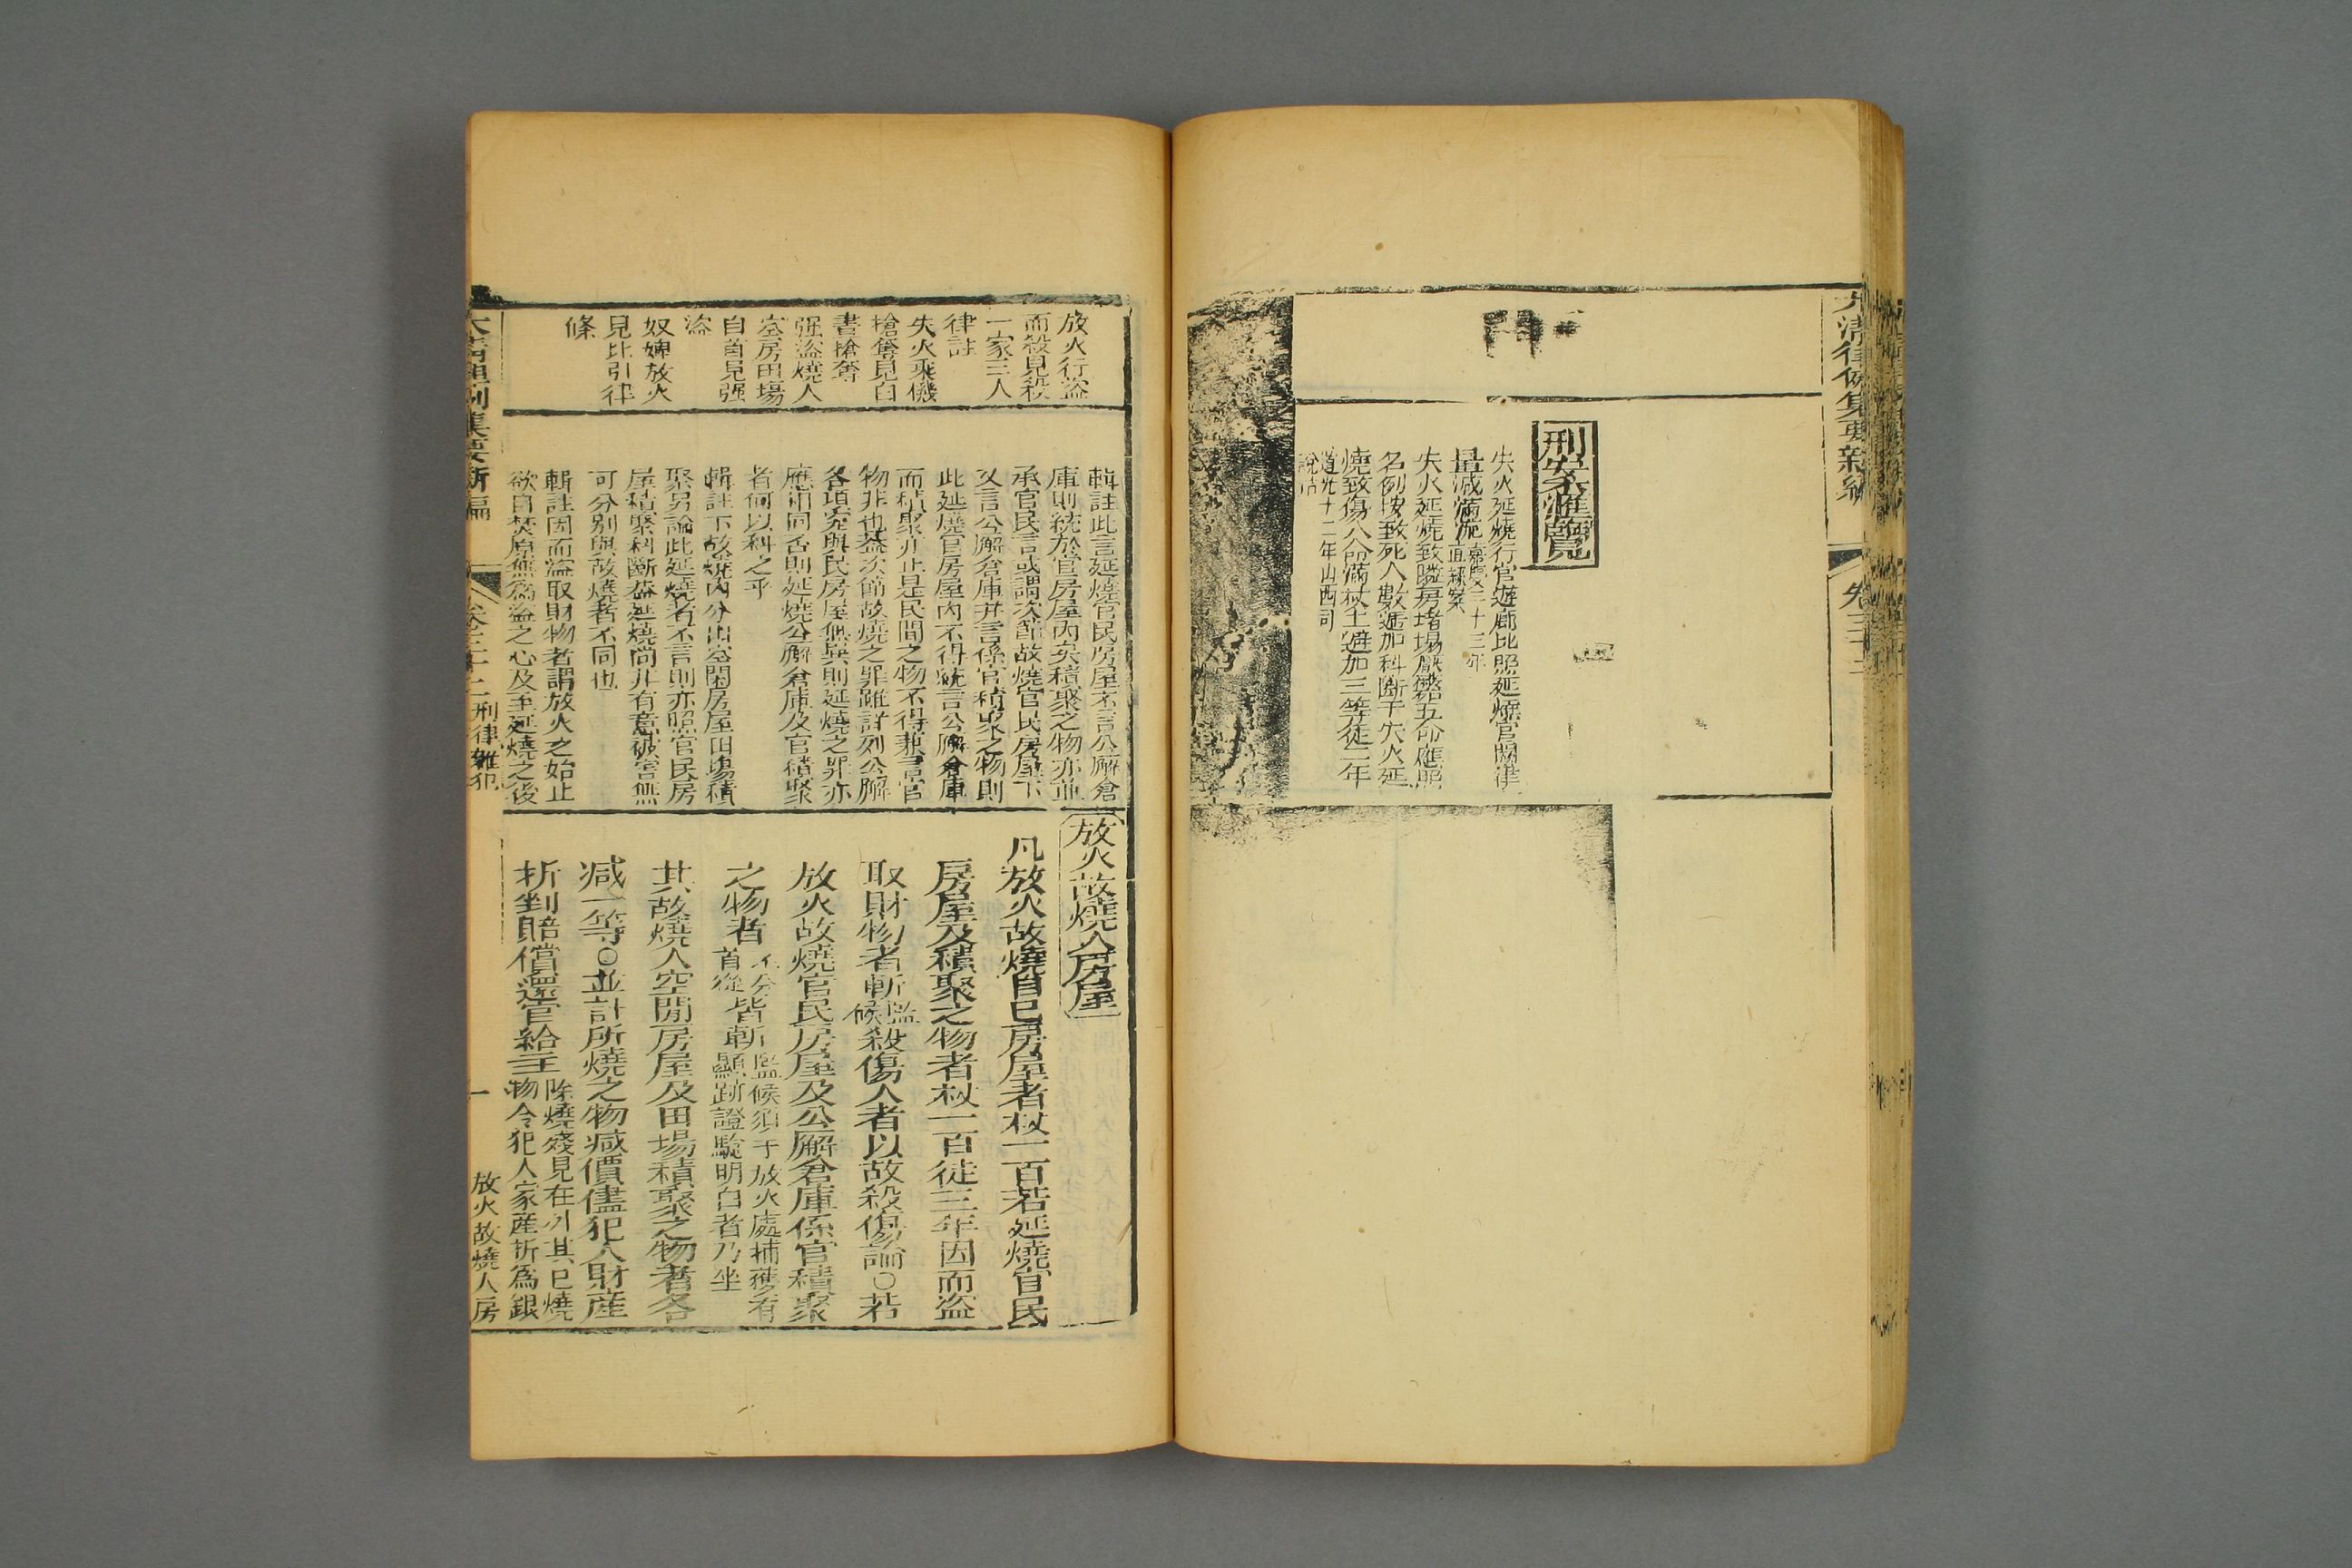 大清律例集要新編
卷三十二
刑案滙覽
失火延燒行宮遊廊比照延燒官闕律
量減滿流嘉慶三十三年直隷案
失火延燒致隣房堵塲壓斃五命應照
名例按致死人數遞加科斷于穴火延
燒致傷八命滿杖上遞加三等徒二年
道光十二年山西司
說帖
放火行盜
而殺見殺
一家三人
律註
失火乘機
搶奪見白
晝搶奪
强盜燒人
空房田塲
自首見强
盜
奴婢放火
見比引律
條
輯註此言延燒官民房屋不言公廨倉
庫則統於官房屋內矣積聚之物亦並
承官民言或謂次節故燒官民房屋下
又言公廨倉庫并言係官積聚之物則
此延燒官房屋內不得統言公廨倉庫
而積聚亦止是民間之物不得兼言官
物非也蓋次節故燒之罪雖詳列公廨
各項究與民房屋無異則延燒之罪亦
應相同否則延燒公廨倉庫及官積聚
者何以科之乎
輯註下故燒內分出空閑房屋田塲積
聚另論此延燒者不言則亦照官民房
屋積聚科斷蓋延燒尚非有意被害無
可分别與故燒者不同也
輯註因而盜取財物者謂放火之始止
欲自焚原無爲盜之心及至延燒之後
放火故燒人房屋
凡放火故燒自已房屋者杖一百若延燒官民
房屋及積聚之物者杖一百徒三年因而盜
取財物者斬監候殺傷人者以故殺傷論○若
放火故燒官民房屋及公廨倉庫係官積聚
之物者不分首從皆斬監候須于放火處捕獲有顯跡證驗明白者乃坐
其故燒人空閒房屋及田場積聚之物者各
减一等○並計所燒之物减價儘犯人財産
折剉賠償還官給主除燒殘見在外其已燒物令犯人家産折爲銀
大清律例集要新編
卷三十二
刑律雜犯
一
放火故燒人房